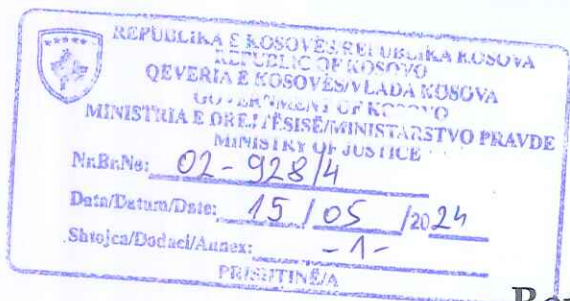 REPUBLIKA E KOSOVËS REPUBLIKA KOSOVA
REPUBLIC OF KOSOVO
QEVERIA E KOSOVËS/VLADA KOSOVA
GOVERNMENT OF KOSOVO
MINISTRIA E DREJTËSISË/MINISTARSTVO PRAVDE
MINISTRY OF JUSTICE
Nr.Br.No: 02-928/4
Data/Datum/Date: 15 / 05 /2024
Shtojca/Dodaci/Annex: -1-
PRISHTINË/A